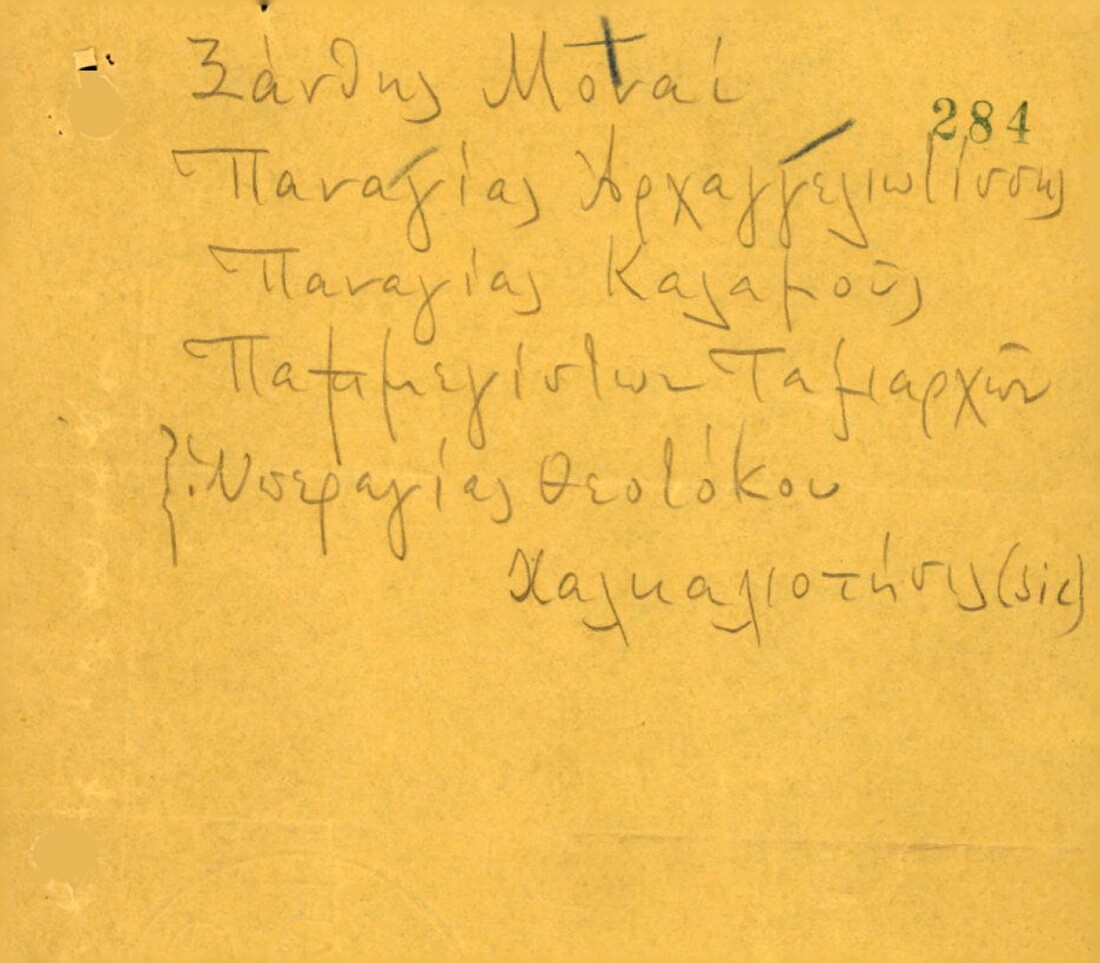 Ξάνθης Μοναί
284
Παναγίας Ἀρχαγγελιωτίσσης
Παναγίας Καλαμοῦς
Παμμεγίστων Ταξιαρχῶν
Ὑπεραγίας Θεοτόκου
Χαλκαλιοτήσις (sic)